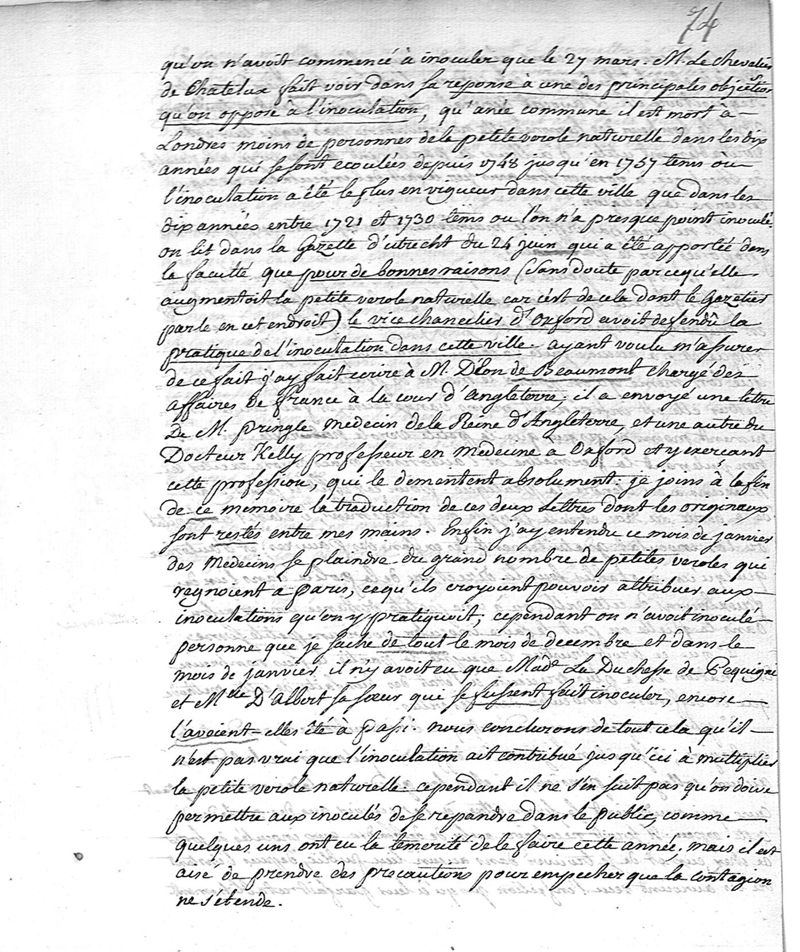 74
qu'on n'avoit commencé à inoculer que le 27 mars. M. Le Chevalier
de Chatelux fait voir dans sa reponse à une des principales objections
qu'on oppose à l'inoculation, qu'anée commune il est mort à
Londres moins de personnes de la petite verole naturelle dans les dix
années qui se sont ecoulées depuis 1748 jusqu'en 1757 tems où
l'inoculation a été le plus en vigueur dans cette ville que dans les
dix années entre 1721 et 1730 tems ou l'on n'a presque point inoculé.
on lit dans la Gazette d'utrecht du 24 juin qui a été apportée dans
la faculté que pour de bonnes raisons (sans doute parcequ'elle
augmentoit la petite verole naturelle car c'est de cela dont le Gazetier
parle en cet endroit) le vice chancelier d'Oxford avoit defendû la
pratique de l'inoculation dans cette ville. ayant voulu m'assurer
de ce fait j'ay fait ecrire à M. D'Eon de Beaumont chargé des
affaires de france à la cour d'Angleterre, il a envoyé une lettre
de M. pringle medecin de la Reine d'Angleterre, et une autre du
Docteur Kelly professeur en medecine à Oxford et y exercant
cette profession, qui le dementent absolument: je joins à la fin
de ce memoire la traduction de ces deux Lettres dont les originaux
sont restés entre mes mains. Enfin j'ay entendu ce mois de janvier
des Medecins se plaindre du grand nombre de petites veroles qui
regnoient à paris, cequ'ils croyoient pouvoir attribuer aux
inoculations qu'on y pratiquoit, cependant on n'avoit inoculé
personne que je sache de tout le mois de decembre et dans le
mois de janvier il n'y avoit eu que Made La Duchesse de Pequigni
et Mlle D'albert sa sœur qui se fussent fait inoculer, encore
l'avoient-elles été à passi. nous conclurons de tout cela qu'il
n'est pas vrai que l'inoculation ait contribué jusqu'ici à multiplier
la petite verole naturelle. cependant il ne s'en suit pas qu'on doive
permettre aux inoculés de se repandre dans le public, comme
quelques uns ont eu la temerité de le faire cette année, mais il est
aisé de prendre des précautions pour empecher que la contagion
ne s'étende.